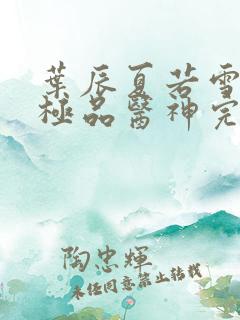 葉辰夏若雪
極品醫神完
陶忠輝
未经同意禁止转载